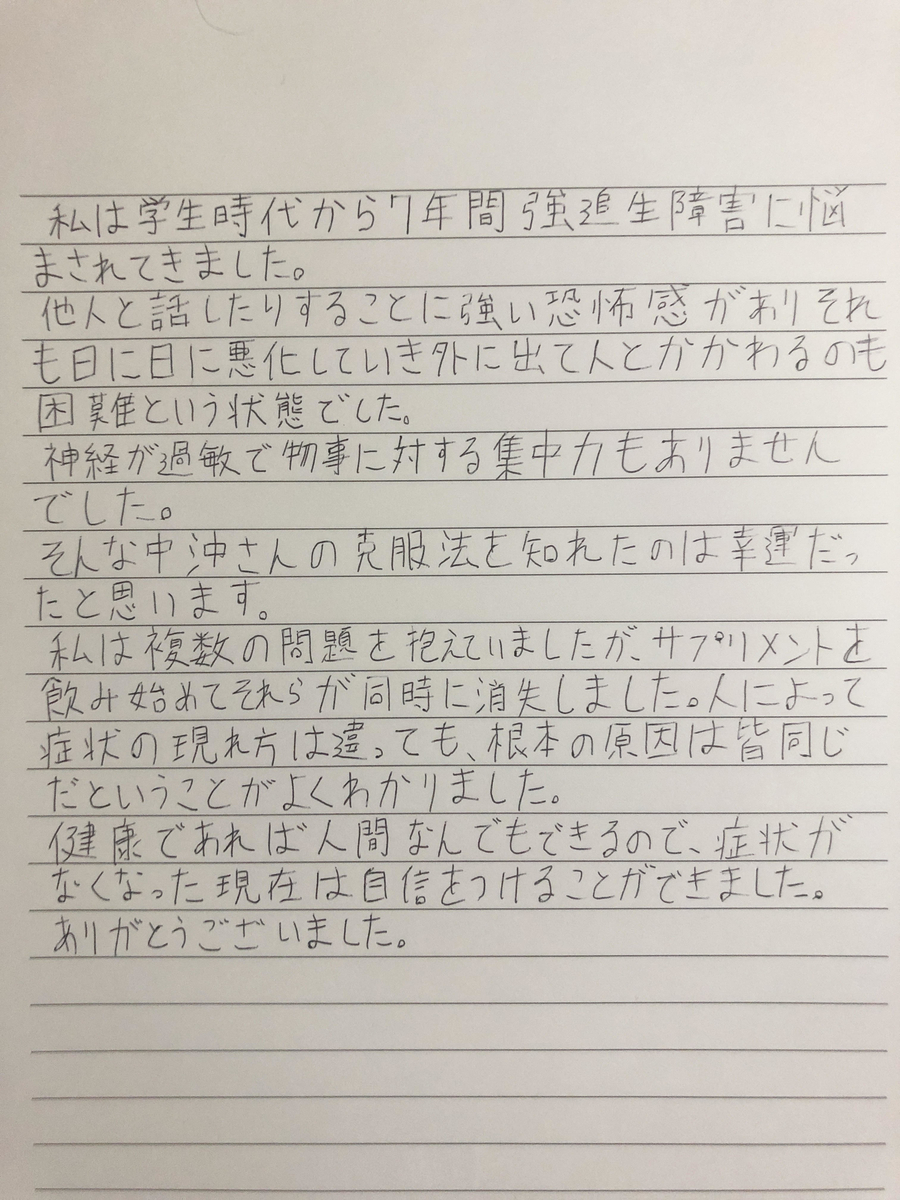 私は学生時代から7年間強追生障害に悩
まされてきました。
他人と話したりすることに強い恐怖感がありそれ
も日に日に悪化していき外に出て人とかかわるのも
困難という状態でした。
神経が過敏で物事に対する集中力もありません
でした。
そんな中沖さんの克服法を知れたのは幸運だっ
たと思います。
私は複数の問題を抱えていましたが、サプリメントを
飲み始めてそれらが同時に消失しました。人によって
症状の現れ方は違っても、根本の原因は皆同じ
だということがよくわかりました。
健康であれば人間なんでもできるので、症状が
なくなった現在は自信をつけることができました。
ありがとうございました。